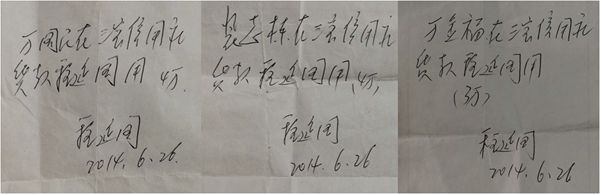 万国民在三岔信用社
贷款程延国用 4万.
程延国
2014.6.26.
志栋在三岔信用社
贷款程延国用(4万)
程延国
2014.6.26
万金福在三岔信用社
贷款程延国用
(3万)
程延国
2014.6.26